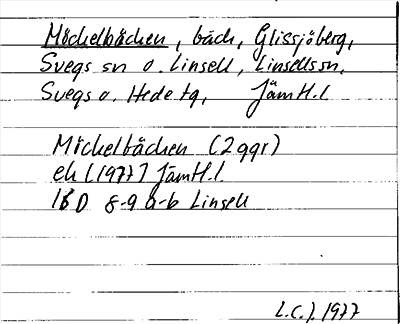 Möckelbäcken, bäck, Glissjöberg,
Svegs sn o. Linsell, Linsells sn,
Svegs o. Hede tg, Jämtl. l
Möckelbäcken (2 ggr)
ek (1977) Jämtl. l.
16 D 8-9 a-b Linsell
L.C.J. 1977